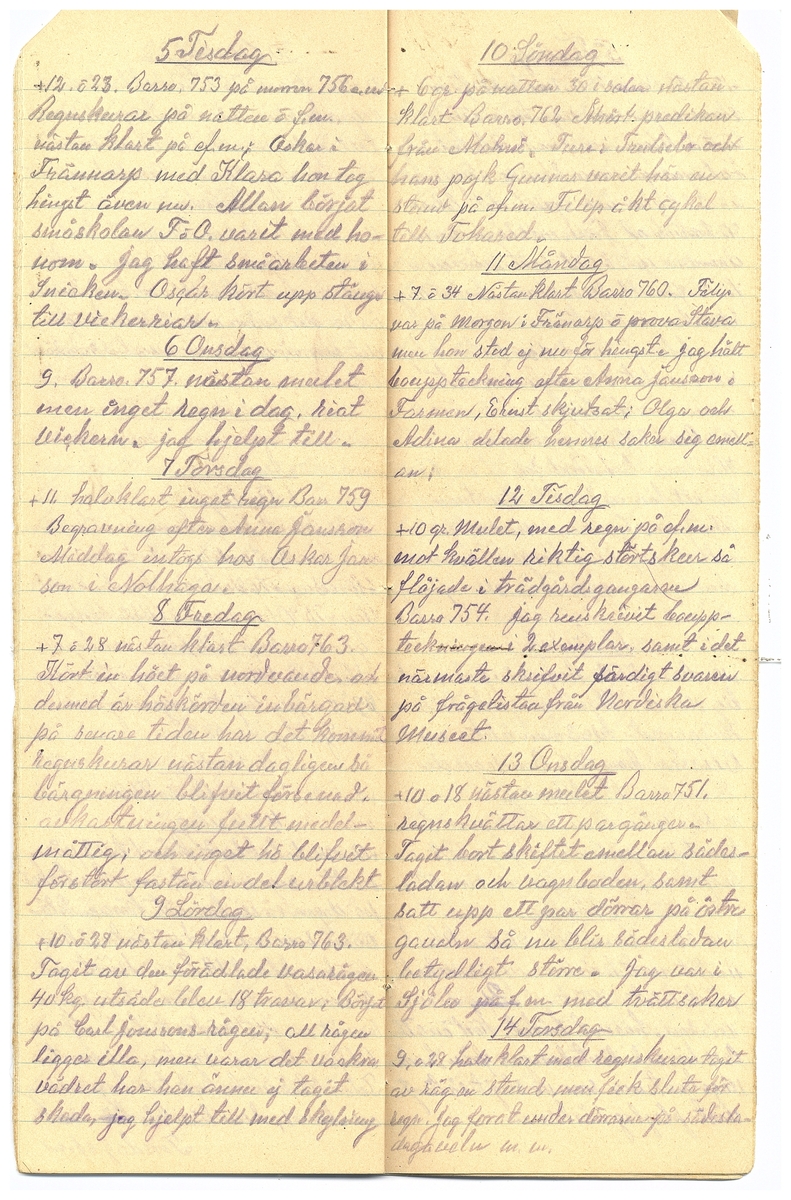 5 Tisdag
+12 ö 23. Barro. 753 på morron 756 e.m
Regnskurar på natten ö f.m.
nästan klart på ef.m; Oskar i
Frännarp med Klara hon tog
hingst även nu. Allan börjat
småskolan F ö O. varit med ho-
nom. jag haft småarbeten i
Snicken. Oscar kört upp stänger
till vickerriar.
6 Onsdag
9. Barro. 757. nästan mulet
men inget regn i dag. riat
vickern. jag hjelpt till.
7 Torsdag
+11 halvklart inget regn Bar 759
Begravning efter Anna Jansson
Middag intogs hos Oskar Jan
son i Nolhaga.
8 Fredag
+7 ö 28 nästan klart Barro 763.
Kört in höet på nordvandet och
dermed är höskörden inbärgad
på senare tiden har det kommit
regnskurar nästan dagligen så
bärgningen blifvit försenad.
avkastningen fullt medel-
måttig; och inget hö blifvit
förstört fastän en del urblekt
9 Lördag
+10 ö 28 nästan klart, Barro 763.
Tagit av den förädlade vasarågen
40 kg utsäde blev 18 travar; Börjat
på Carl Jonssons rågen; all rågen
ligger illa, men varar det vackra
vädret har han ännu ej tagit
skada, jag hjelpt till med skylning
10 Söndag
+ 6 gr. på natten 30 i solen nästan
klart Barro. 762 Ahört. predikan
från Malmö. Ture i Trulsebo och
hans pojk Gunnar varit här en
stund på ef.m. Filip åkt cykel
till Tokared.
11 Måndag
+7 ö 34 Nästan klart Barro 760. Filip
var på morgon i Fränarp ö prova Stava
men hon stod ej nu för hingst. jag hält
bouppteckning efter Anna Jansson i
Tormen, Ernst skjutsat; Olga och
Adina delade hennes saker sig emell-
an;
12 Tisdag
+10 gr. Mulet, med regn på ef.m.
mot kvällen riktig störtskur så
flöjade i trädgårdsgangarne
Barro 754. jag renskrivit boupp-
teckningen i 2 exemplar, samt i det
närmaste skrifvit färdigt svaren
på frågelistan från Nordiska
Museet.
13 Onsdag
+10 o 18 nästan mulet Barro 751.
regnskvättar ett par gånger.
Tagit bort skiftet emellan sädes-
ladan och vagnboden, samt
satt upp ett par dörrar på östre
gaveln så nu blir sädesladan
betydligt större. Jag var i
Sjöbo på f.m med tvättsaker
14 Torsdag
9, o 28 halv klart med regnskurar tagit
av råg en stund men fick sluta för
regn. Jag forat under dörrarne på sädesla-
dagaveln m. m.